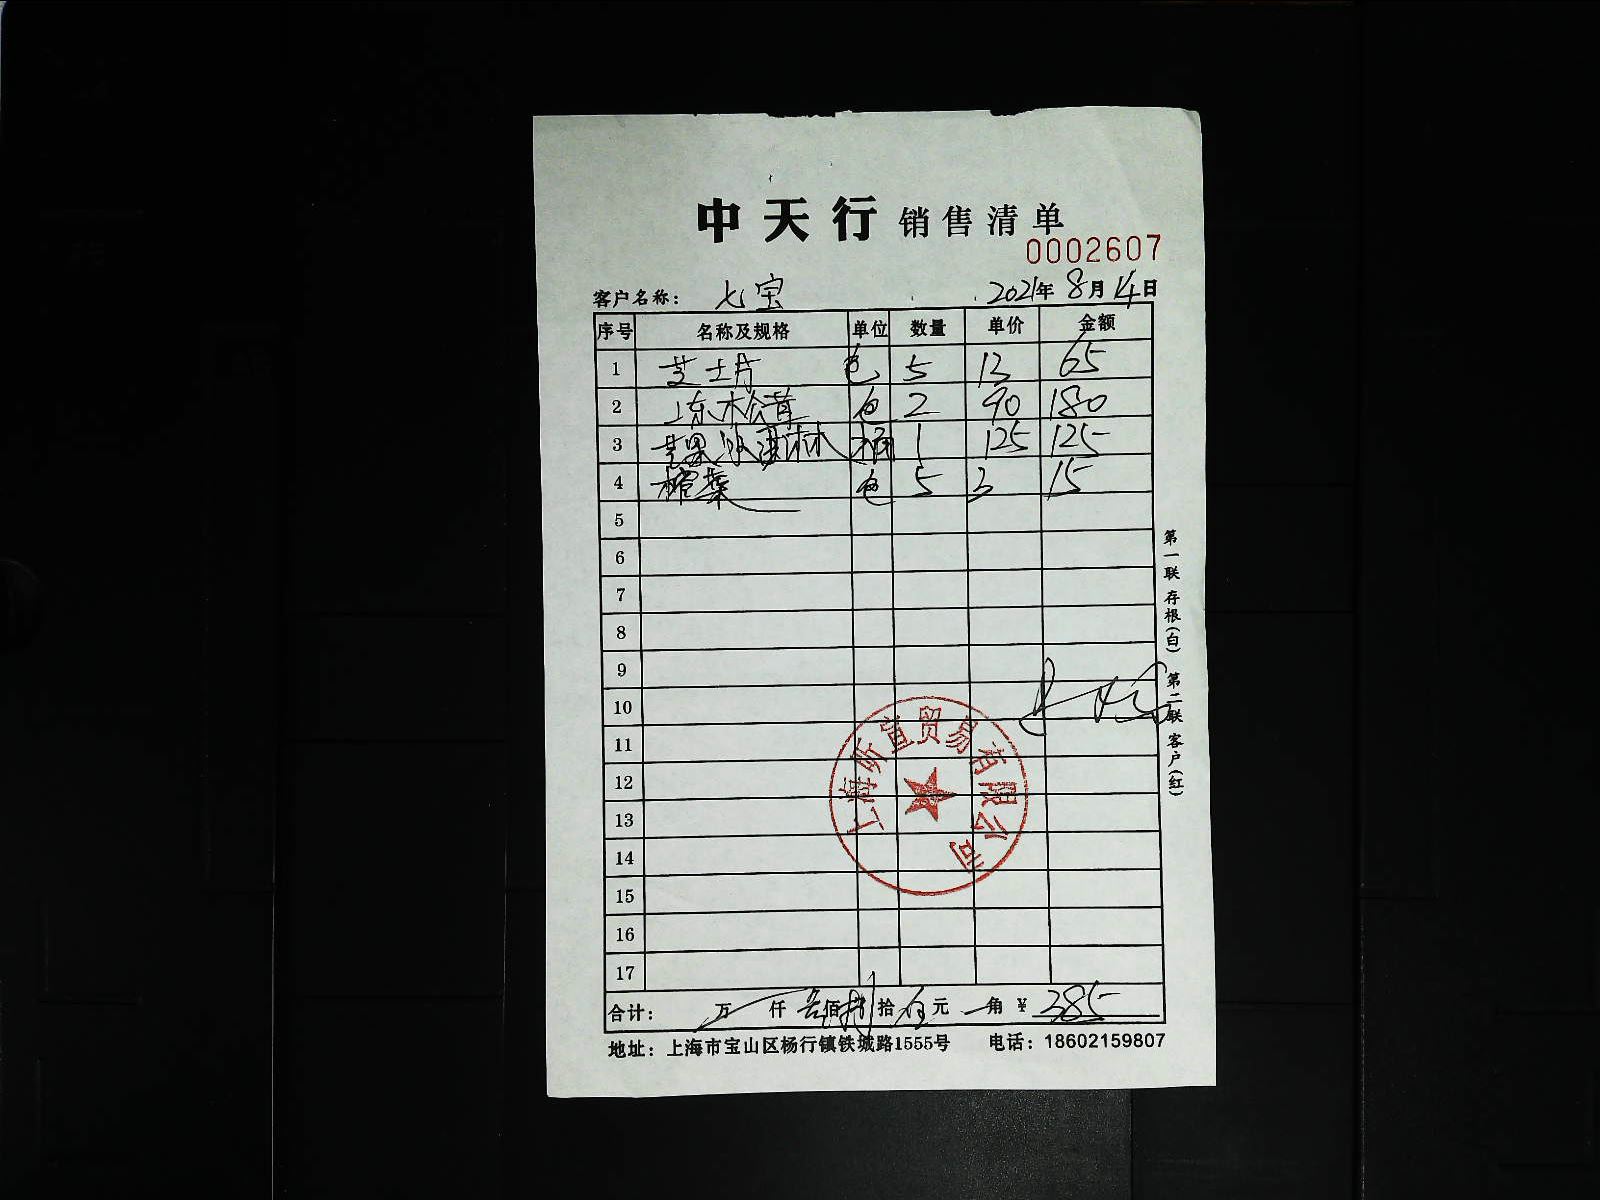 中天行 销售清单
0002607
客户名称： 七宝 2021年8月14日
序号 名称及规格 单位 数量 单价 金额
1 芝士片 包 5 13 65
2 冻松茸 包 2 90 180
3 芒果冰淇淋 桶 1 125 125
4 粽叶 包 5 3 15
5
6
7
8
9
10
11
12
13
14
15
16
17
上海昕宣贸易有限公司
合计： 万 仟 叁佰捌拾伍元 角 ¥ 385
地址：上海市宝山区杨行镇铁城路1555号 电话：18602159807
第一联 存根（白） 第二联 客户（红）